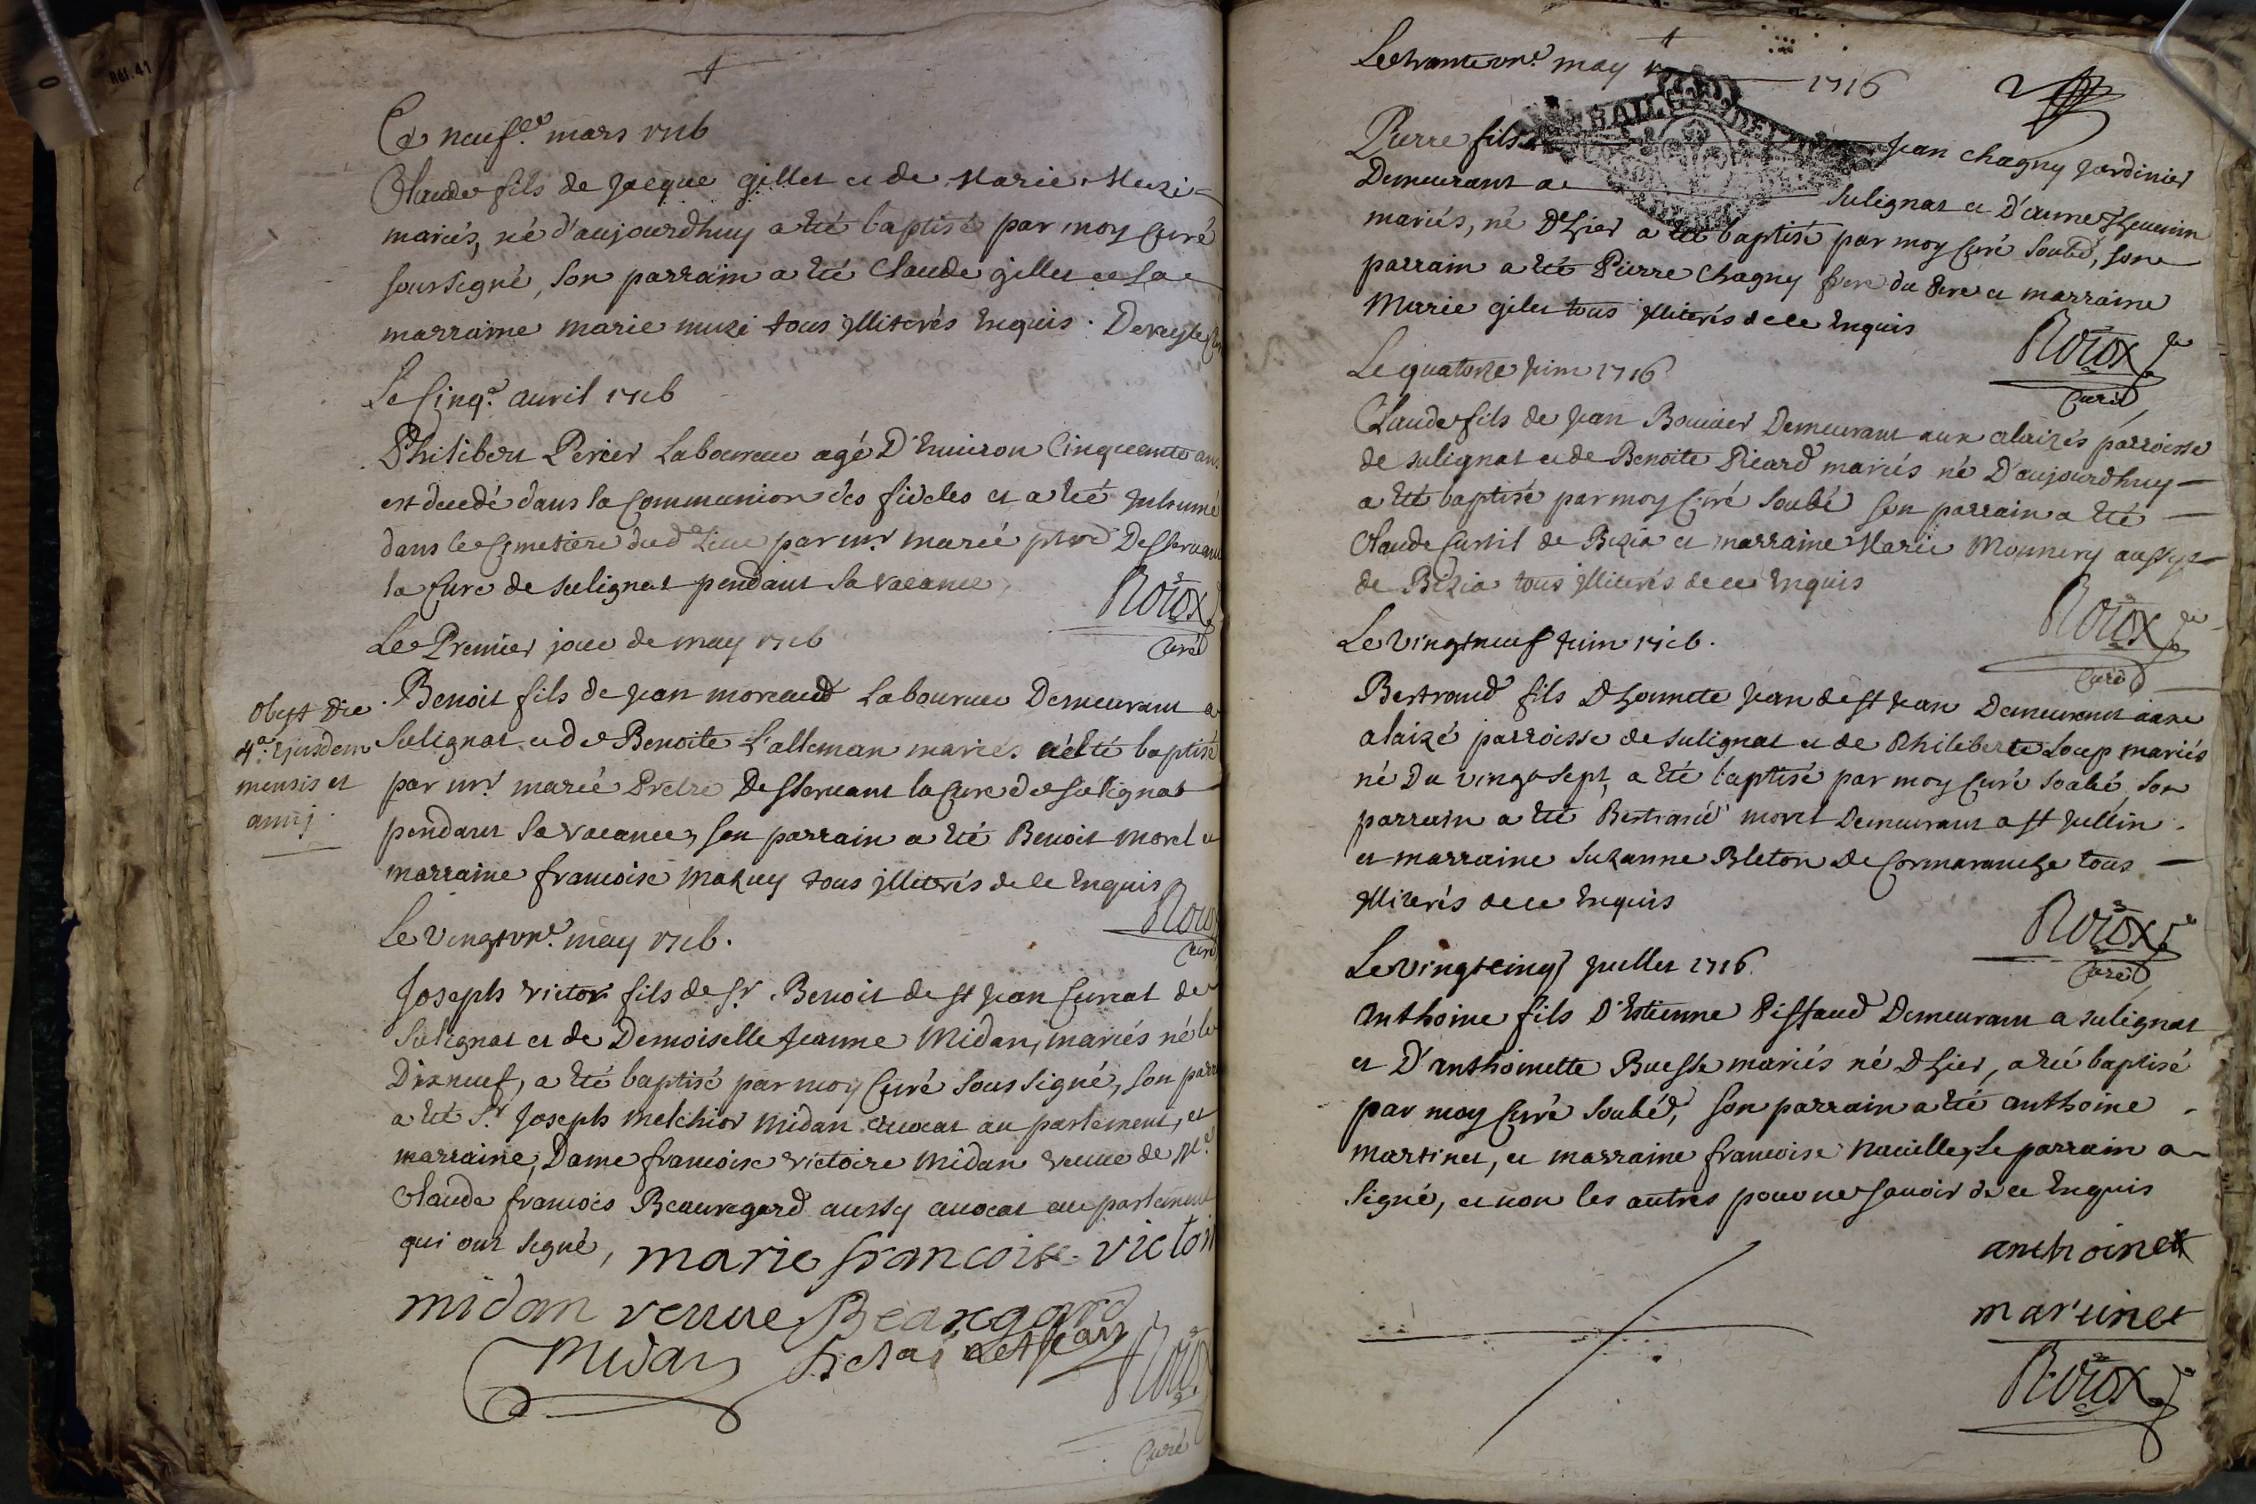 Ce neuf.e mars 1716
Claude fils de Jacque gillet et de Marie Muzi
mariés, né d'aujourdhuy a été baptisé par moy curé
soussigné, son parrain a été Claude gillet et sa
marraine marie muzi tous illiterés enquis.
Le Cinq.e avril 1716
Philibert Perier Laboureur agé D'Environ Cinquante ans
est decedé dans la Communion des fideles et a été Inhumé
dans le Cimetiere dud Lieu par mr marié ptre Desservant
la Cure de sulignat pendant sa vacance
Rorox
Curé
Le Premier jour de may 1716
Obyt Die
4.a Ejusdem
mensis et
annj
Benoit fils de Jean moreaud Laboureur Demeurant a
Sulignat et de Benoite L'alleman mariés a été baptisé
par mr marié Prêtre Desservant la Cure de Sulignat
pendant sa vacance, son parrain a été Benoit morel et
marraine francoise mazuy tous illiterés de ce Enquis
Rorox
Curé
Le vingt un.e may 1716.
Joseph victor fils de sr. Benoit de st Jean Curial de
Sulignat et de Demoiselle Jeanne Midan, mariés né le
Dixneuf, a été baptisé par moy Curé sous signé, son parra
a été Sr Joseph melchior midan avocat au parlement, et
marraine, Dame francoise victoire Midan veuve de Mr.
Claude francois Beauregard aussy avocat au parlement
qui ont signé, marie francoise victoir
midan veuve Beauregard
Midan de st Jean
Rorox
Curé
Le trante un.e may 1716
Pierre fils Jean Chagny Jardinier
Demeurant a Sulignat et D'anne Thevenin
mariés, né D'hier a été baptisé par moy Curé soubsé, son
parrain a été Pierre Chagny frere du Pere et marraine
Marie gilet tous illiterés de ce Enquis
Rorox
Curé
Le quatorze Juin 1716
Claude fils de Jean Bouvier Demeurant aux alaizés parroisse
de sulignat et de Benoite Picard mariés né D'aujourdhuy
a été baptisé par moy Curé soubsé son parrain a été
Claude Curtil de Bizia et marraine Marie Monnery aussy
de Bizia tous illiterés de ce Enquis
Rorox
Curé
Le vingtneuf Juin 1716.
Bertrand fils D'honnete Jean de st Jean Demeurant aux
alaizé parroisse de sulignat et de Philiberte Loup mariés
né Du vingt sept, a été baptisé par moy Curé soubsé son
parrain a été Bertrand morel Demeurant a st Jullin
et marraine Suzanne Bleton de Cormaranche tous
illiterés de ce Enquis
Rorox
Curé
Le vingtcinq Juillet 1716
anthoine fils D'Estienne Piffaud Demeurant a sulignat
et D'anthoinette Buesse mariés né D'hier, a été baptisé
par moy Curé soubsé, son parrain a été anthoine
martinet, et marraine francoise Naville, Le parrain a
signé, et non les autres pour ne savoir de ce Enquis
anthoine
martinet
Rorox